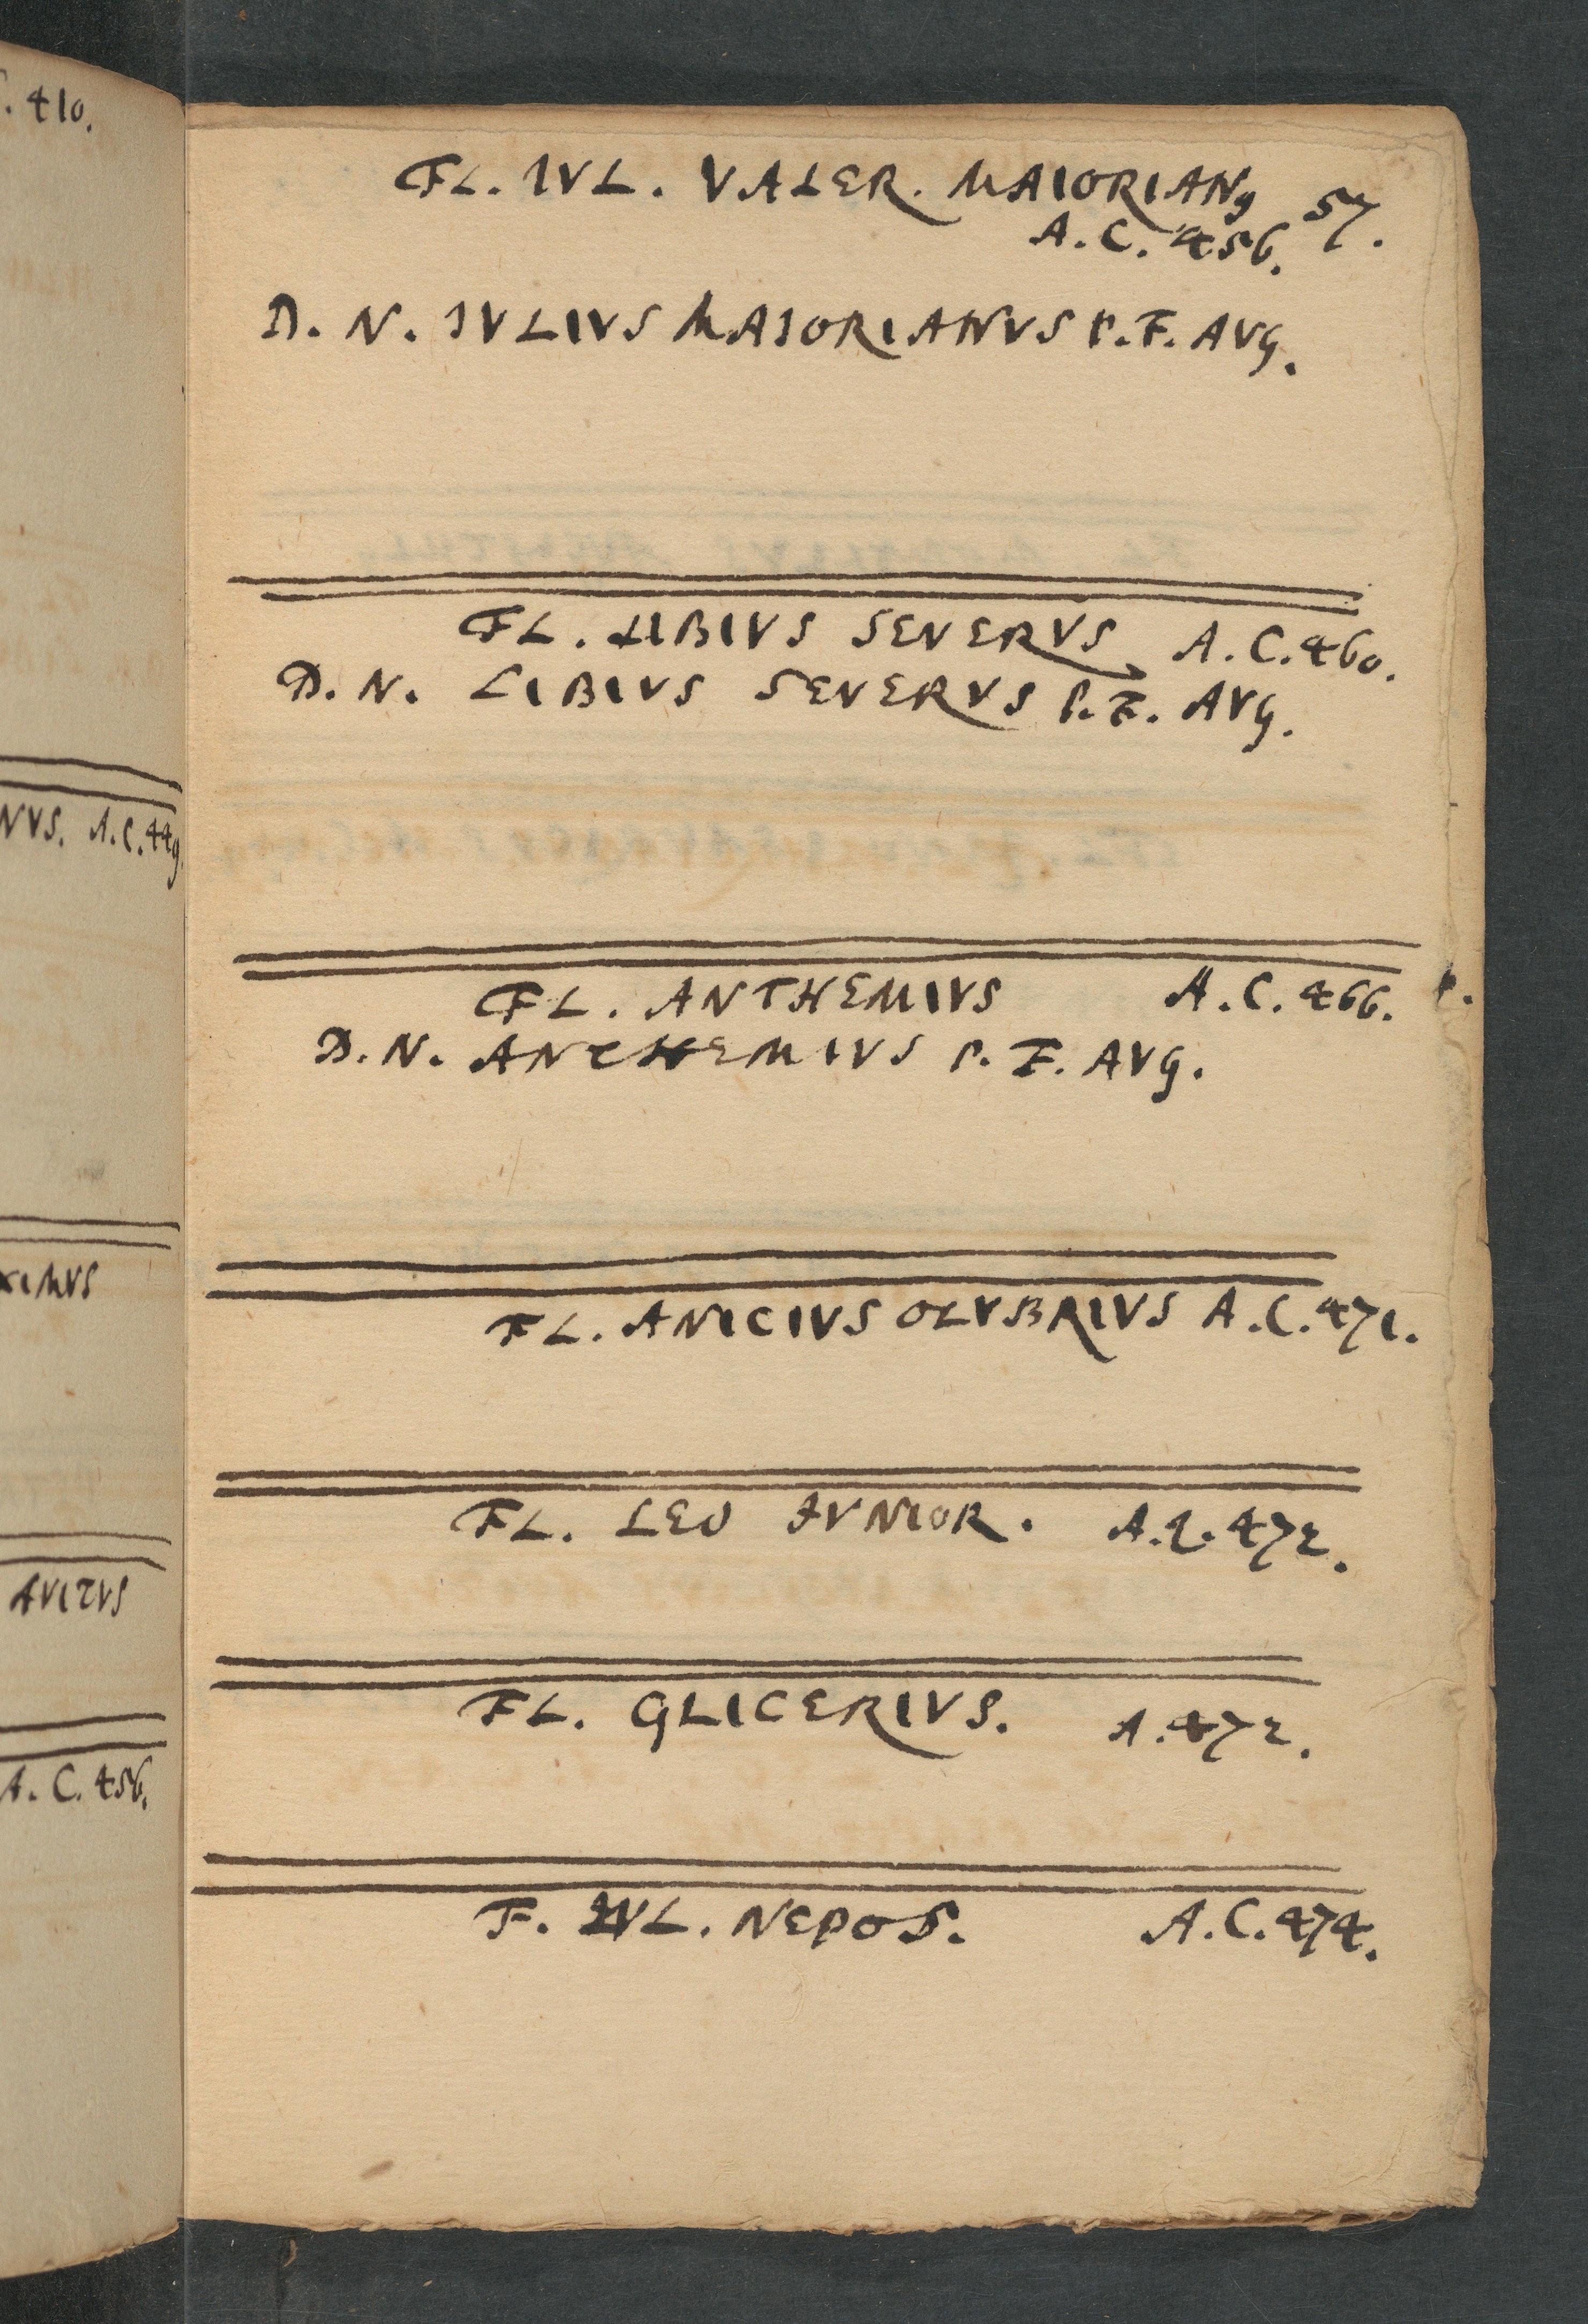 . 410.
NVS. A.C.449
XIMVS
AVITVS
A. C. 456.
FL. IVL. VALER. MAIORIAN9 57.
A.C. 456.
D. N. IVLIVS MAIORIANVS P.F. AVG.
FL. LIBIVS SEVERVS A.C.460.
D.N. LIBIVS SEVERVS P.F. AVG.
FL. ANTHEMIVS A.C.466.
D.N. ANTHEMIVS P.F. AVG.
FL. ANICIVS OLVBRIVS A.C.471.
FL. LEO IVNIOR. A.C.472.
FL. GLICERIVS. A.472.
F. IVL. NEPOS. A.C.474.